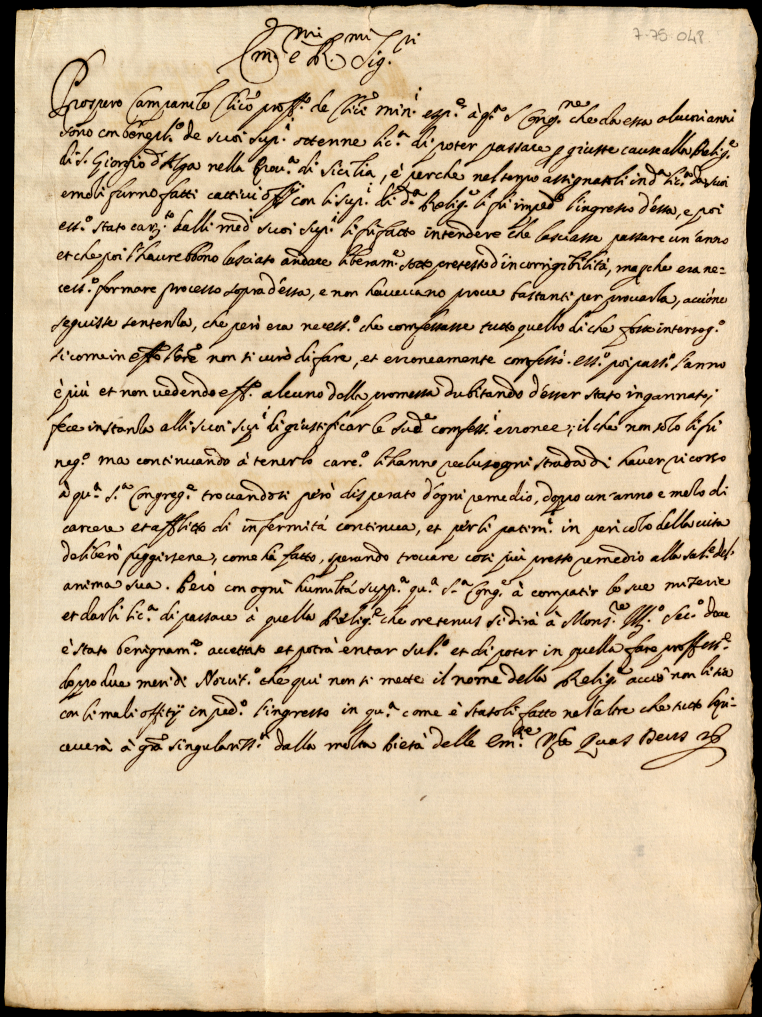 7-75-048
Em.mi e R.mi Sig.ri
Prospero Campanile Chico proff.o de Chici min.i esp.e à q.a S. Cong.ne che da essa alcuni anni
sono con beneplt.o de suoi sup.i ottenne lic.a di poter passare p giuste cause alla Relig.e
di S. Giorgio d'Alga nella Prou.a di Sicilia, è perche nel tempo assignatoli in d.a lic.a da suoi
emoli furno fatti cattiui off.i con li sup.i di d.a Relig.e li fù imped.o l'ingresso d'essa, e poi
ess.o stato carz.o dalli med.i suoi sup.i li fù fatto intendere che lasciasse passare un'anno
et che poi l'haurebbono lasciato andare liberam.e sotto pretesto d'incorrigibilità, ma perche era ne=
cess.o formare processo sopra d'essa, e non haueuano proue bastanti per prouarla, acciòne
seguisse sentenza, che però era necess.o che confessasse tutto quello di che fosse interrog.o
si come in effetto non si curò di fare, et erroneamente confessò. ess.o poi pass.o l'anno
è più et non uedendo eff.o alcuno della promessa dubitando d'esser stato ingannato
fece instanza alli suoi sup.i di giustificar le sud.e confess.i erronee; il che non solo li fù
neg.o ma continuando à tenerlo carc.o li hanno recluso ogni strada di hauer ricorso
à qu.a S.a Congreg.e trouandosi però disperato d'ogni remedio, doppo un'anno e mezo di
carcere et afflitto di infermità continua, et per li patim.i in pericolo della uita
deliberò fuggirsene, come hà fatto, sperando trouare così più presto remedio alla salu.e del
anima sua. Però con ogni humiltà supp.a qu.a S.a Cong.e à compatir le sue miserie
et darli lic.a di passare à quella Relig.e che oretenus si dirà à Mons.re Ill.o Sec.o doue
è stato benignam.e accettato et potrà entrar sub.o et di poter in quella fare proffess.e
doppo due mesi di Nouit.o che quì non si mette il nome della Relig.e acciò non li sia
con li mali offitij imped.o l'ingresso in qu.a come è statoli fatto nel'altre che tutto riqui=
ceuerà à gra singulariss.a dalla molta pietà delle Em.ze V're Quas Deus